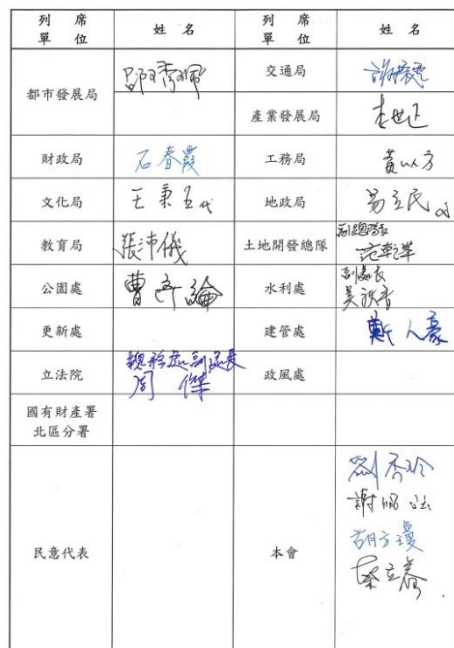 列席單位 姓名 列席單位 姓名
都市發展局 邵琇珮 交通局
產業發展局
財政局 石春霞 工務局 黃以方
文化局 王秉五代 地政局 易立民代
教育局 張沛儀 土地開發總隊 副總隊長
公園處 曹彥綸 水利處 副處長
更新處 建管處 鄭人豪
立法院 總務處副處長 周傑 政風處
國有財產署北區分署
民意代表 本會 劉秀玲
胡方瓊
蔡立睿